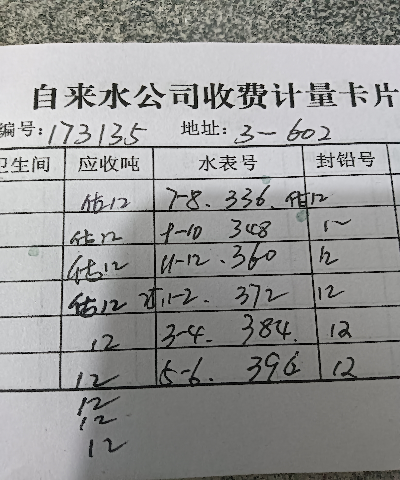 自来水公司收费计量卡片
编号:173135 地址:3-602
卫生间 应收吨 水表号 封铅号
估12 7-8. 336. 估12
估12 9-10 348 12
估12 11-12. 360 12
估12 1-2. 372 12
12 3-4. 384. 12
12 5-6. 396 12
12
12
12